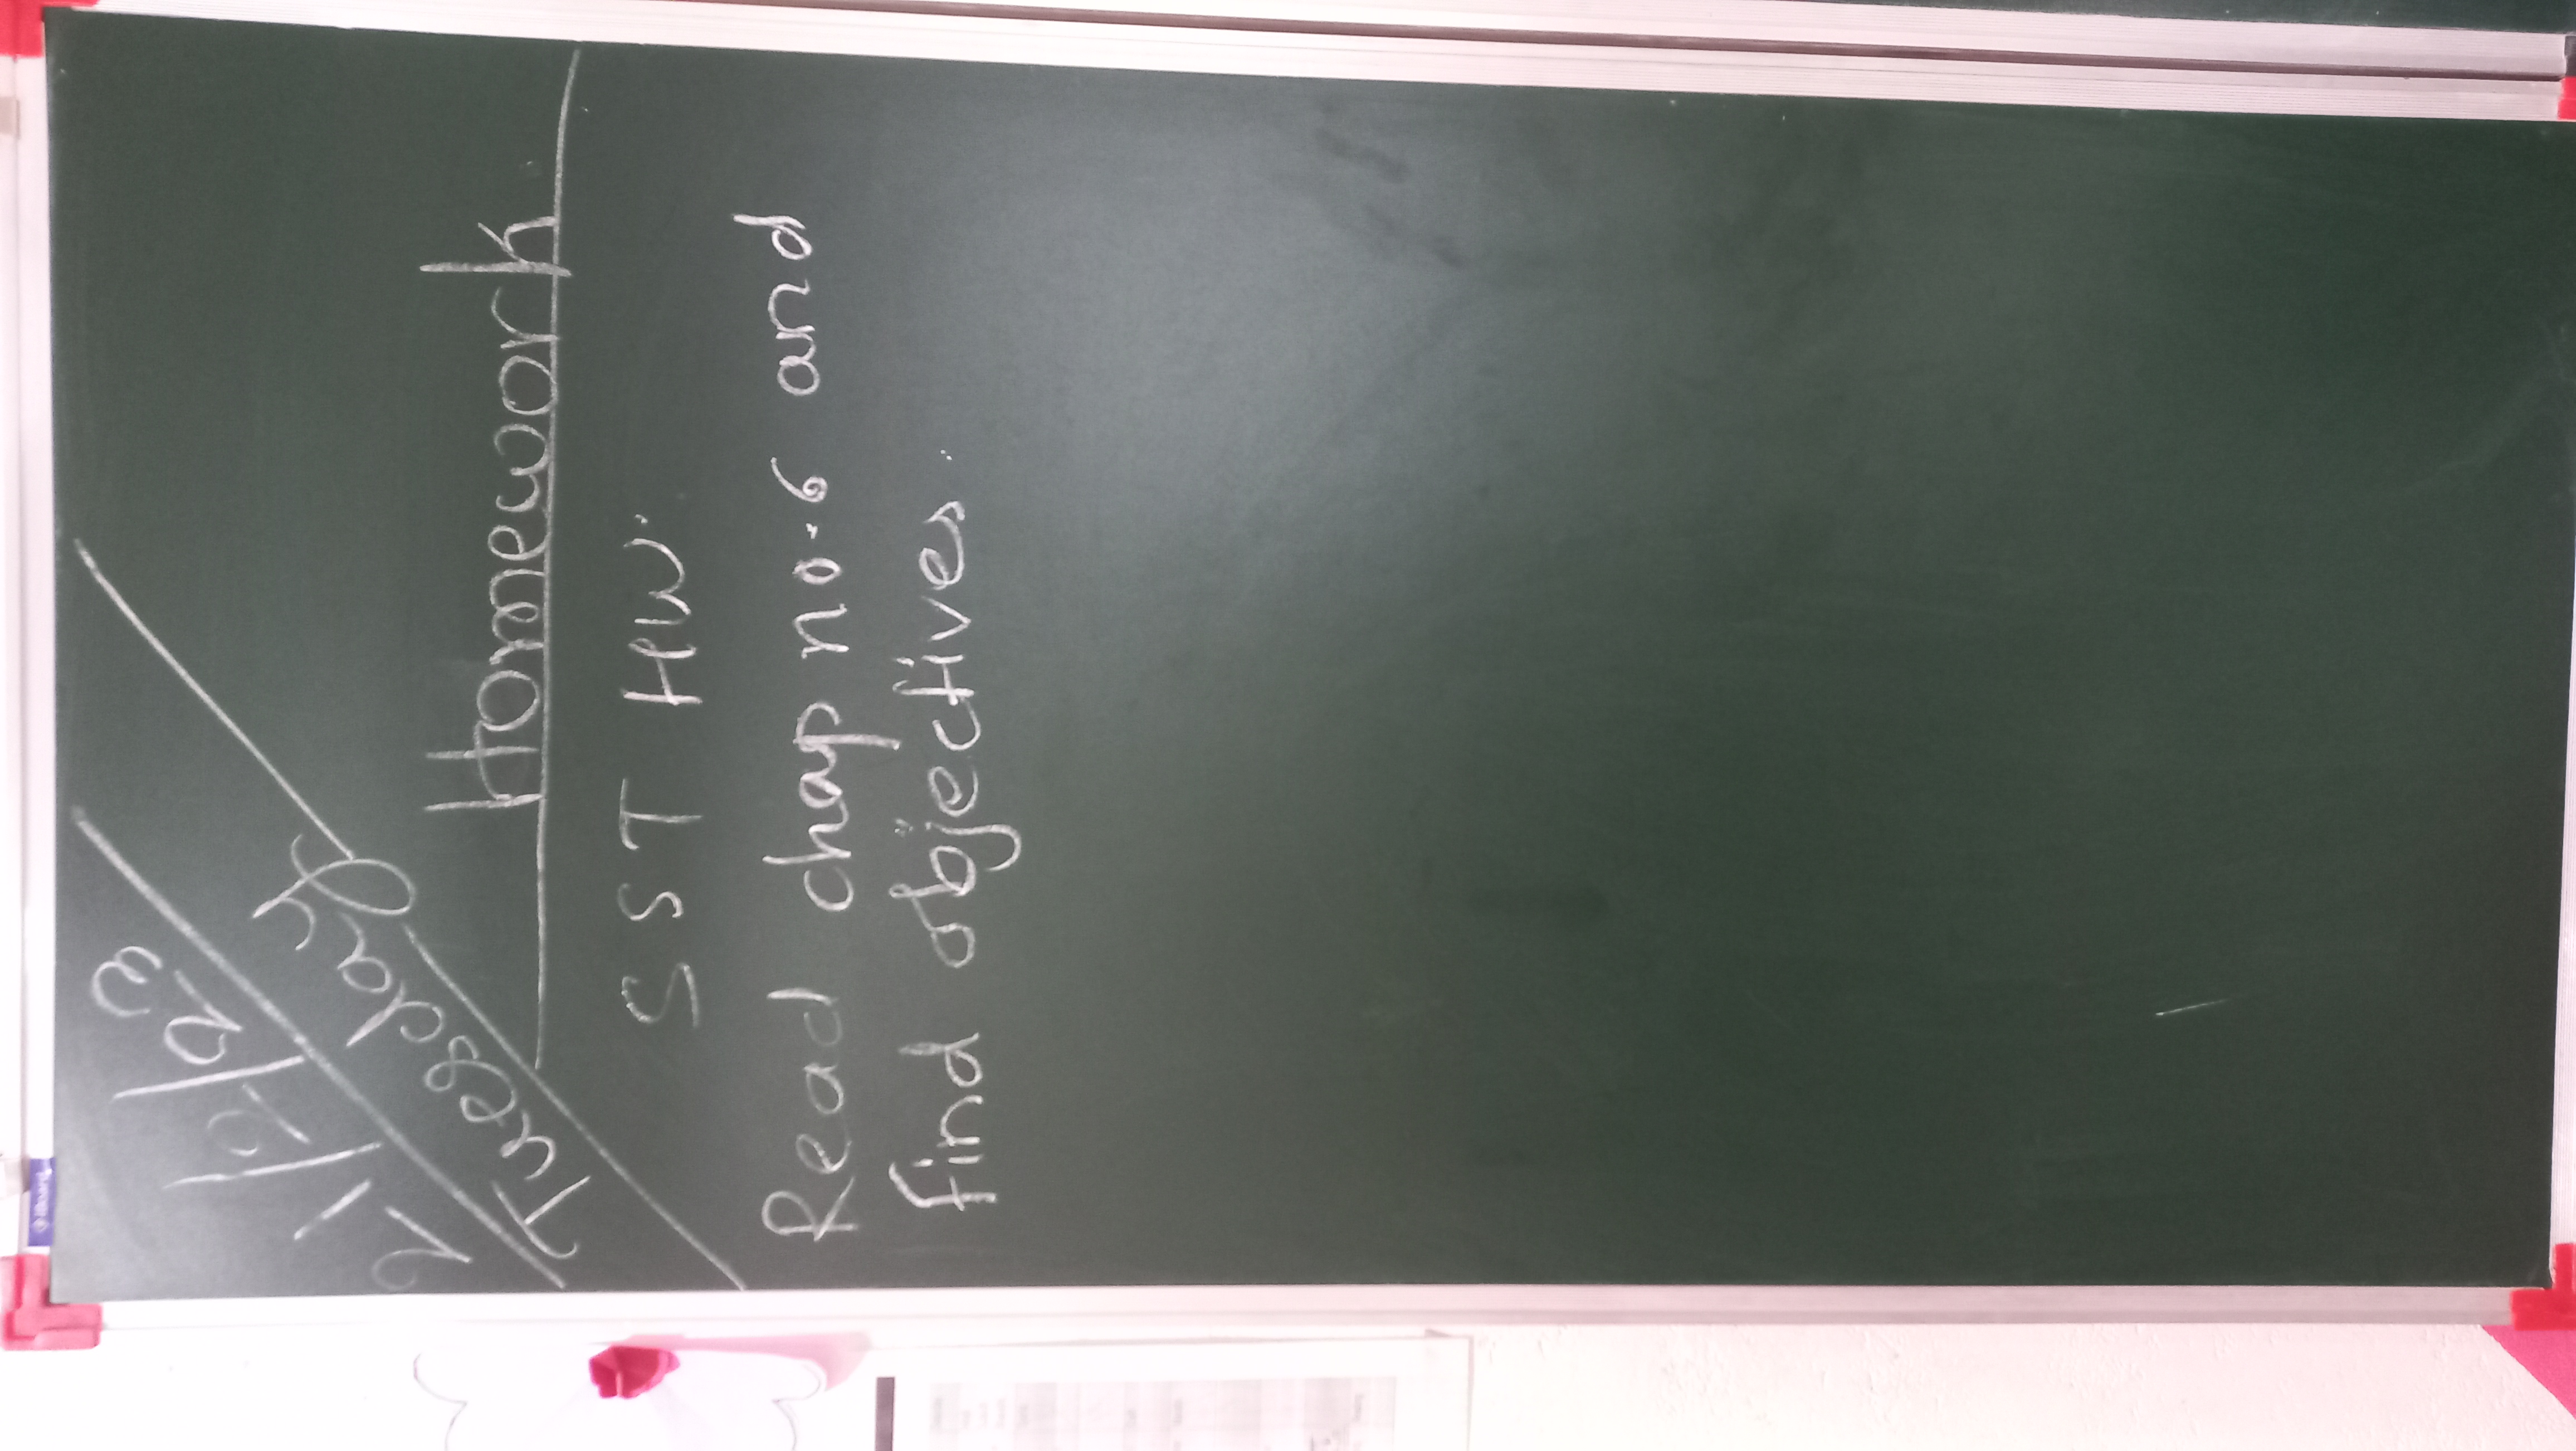 21/2/23
Tuesday
Homework
SST HW.
Read chap no. 6 and
find objectives.